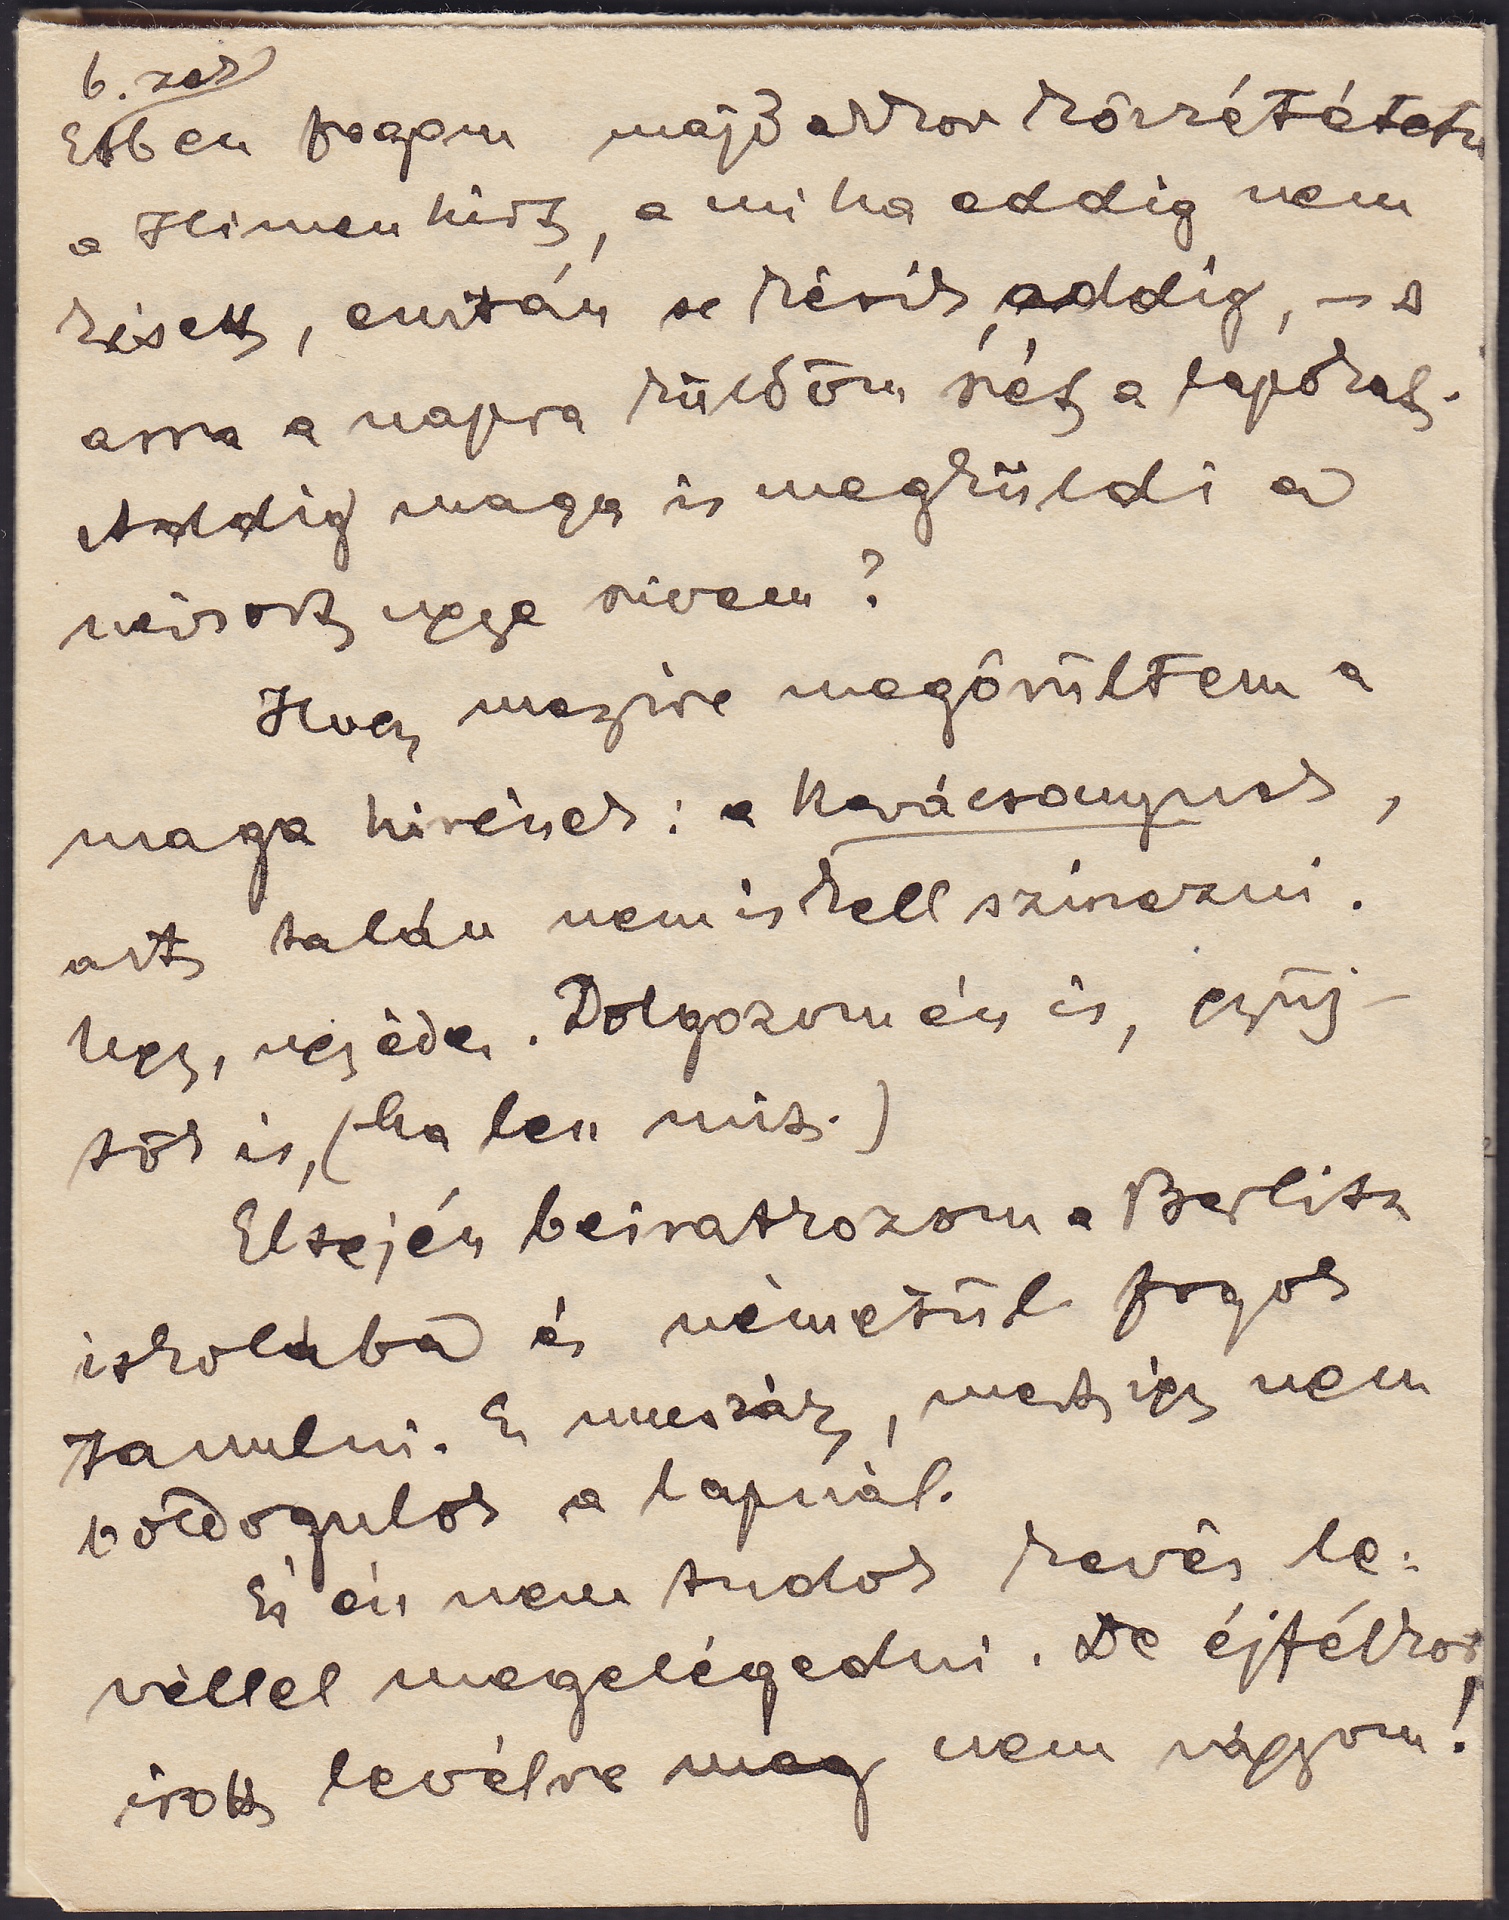 6.
Ebben fogom majd akkor közzététetni
a Himen hirt, a mi ha eddig nem
késett, ezután se késik addig, – s
arra a napra küldöm szét a lapokat.
Addig maga is megküldi a
névsort ugye szivem?
Hogy mennyire megörültem a
maga hirének: a Karácsonynak,
azt talán nem is kell szinezni.
Ugy, ugy édes. Dolgozom én is, gyüj-
tök is, (ha len mit.)
Elsején beiratkozom a Berlitz
iskolába és németül fogok
tanulni. Ez muszáj, mert igy nem
boldogulok a lapnál.
És én nem tudok kevés le-
véllel megelégedni. De éjfélkor
irott levélre meg nem vágyom!